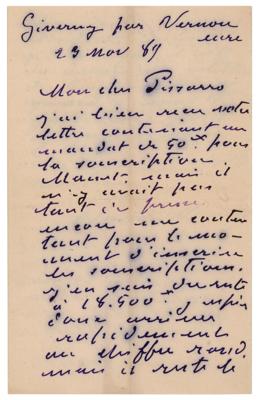 Giverny par Vernon
eure
23 Nov 89
Mon cher Pissarro
j'ai bien reçu votre
lettre contenant un
mandat de 50f pour
la souscription
Manet, mais il
n'y avait pas
tant à presse
encore me conten
tant pour le mo-
ment d'inscrire
les souscriptions.
j'en suis du reste
à 18.500f j'espère
donc arriver
rapidement
au chiffre rond.
mais il reste le